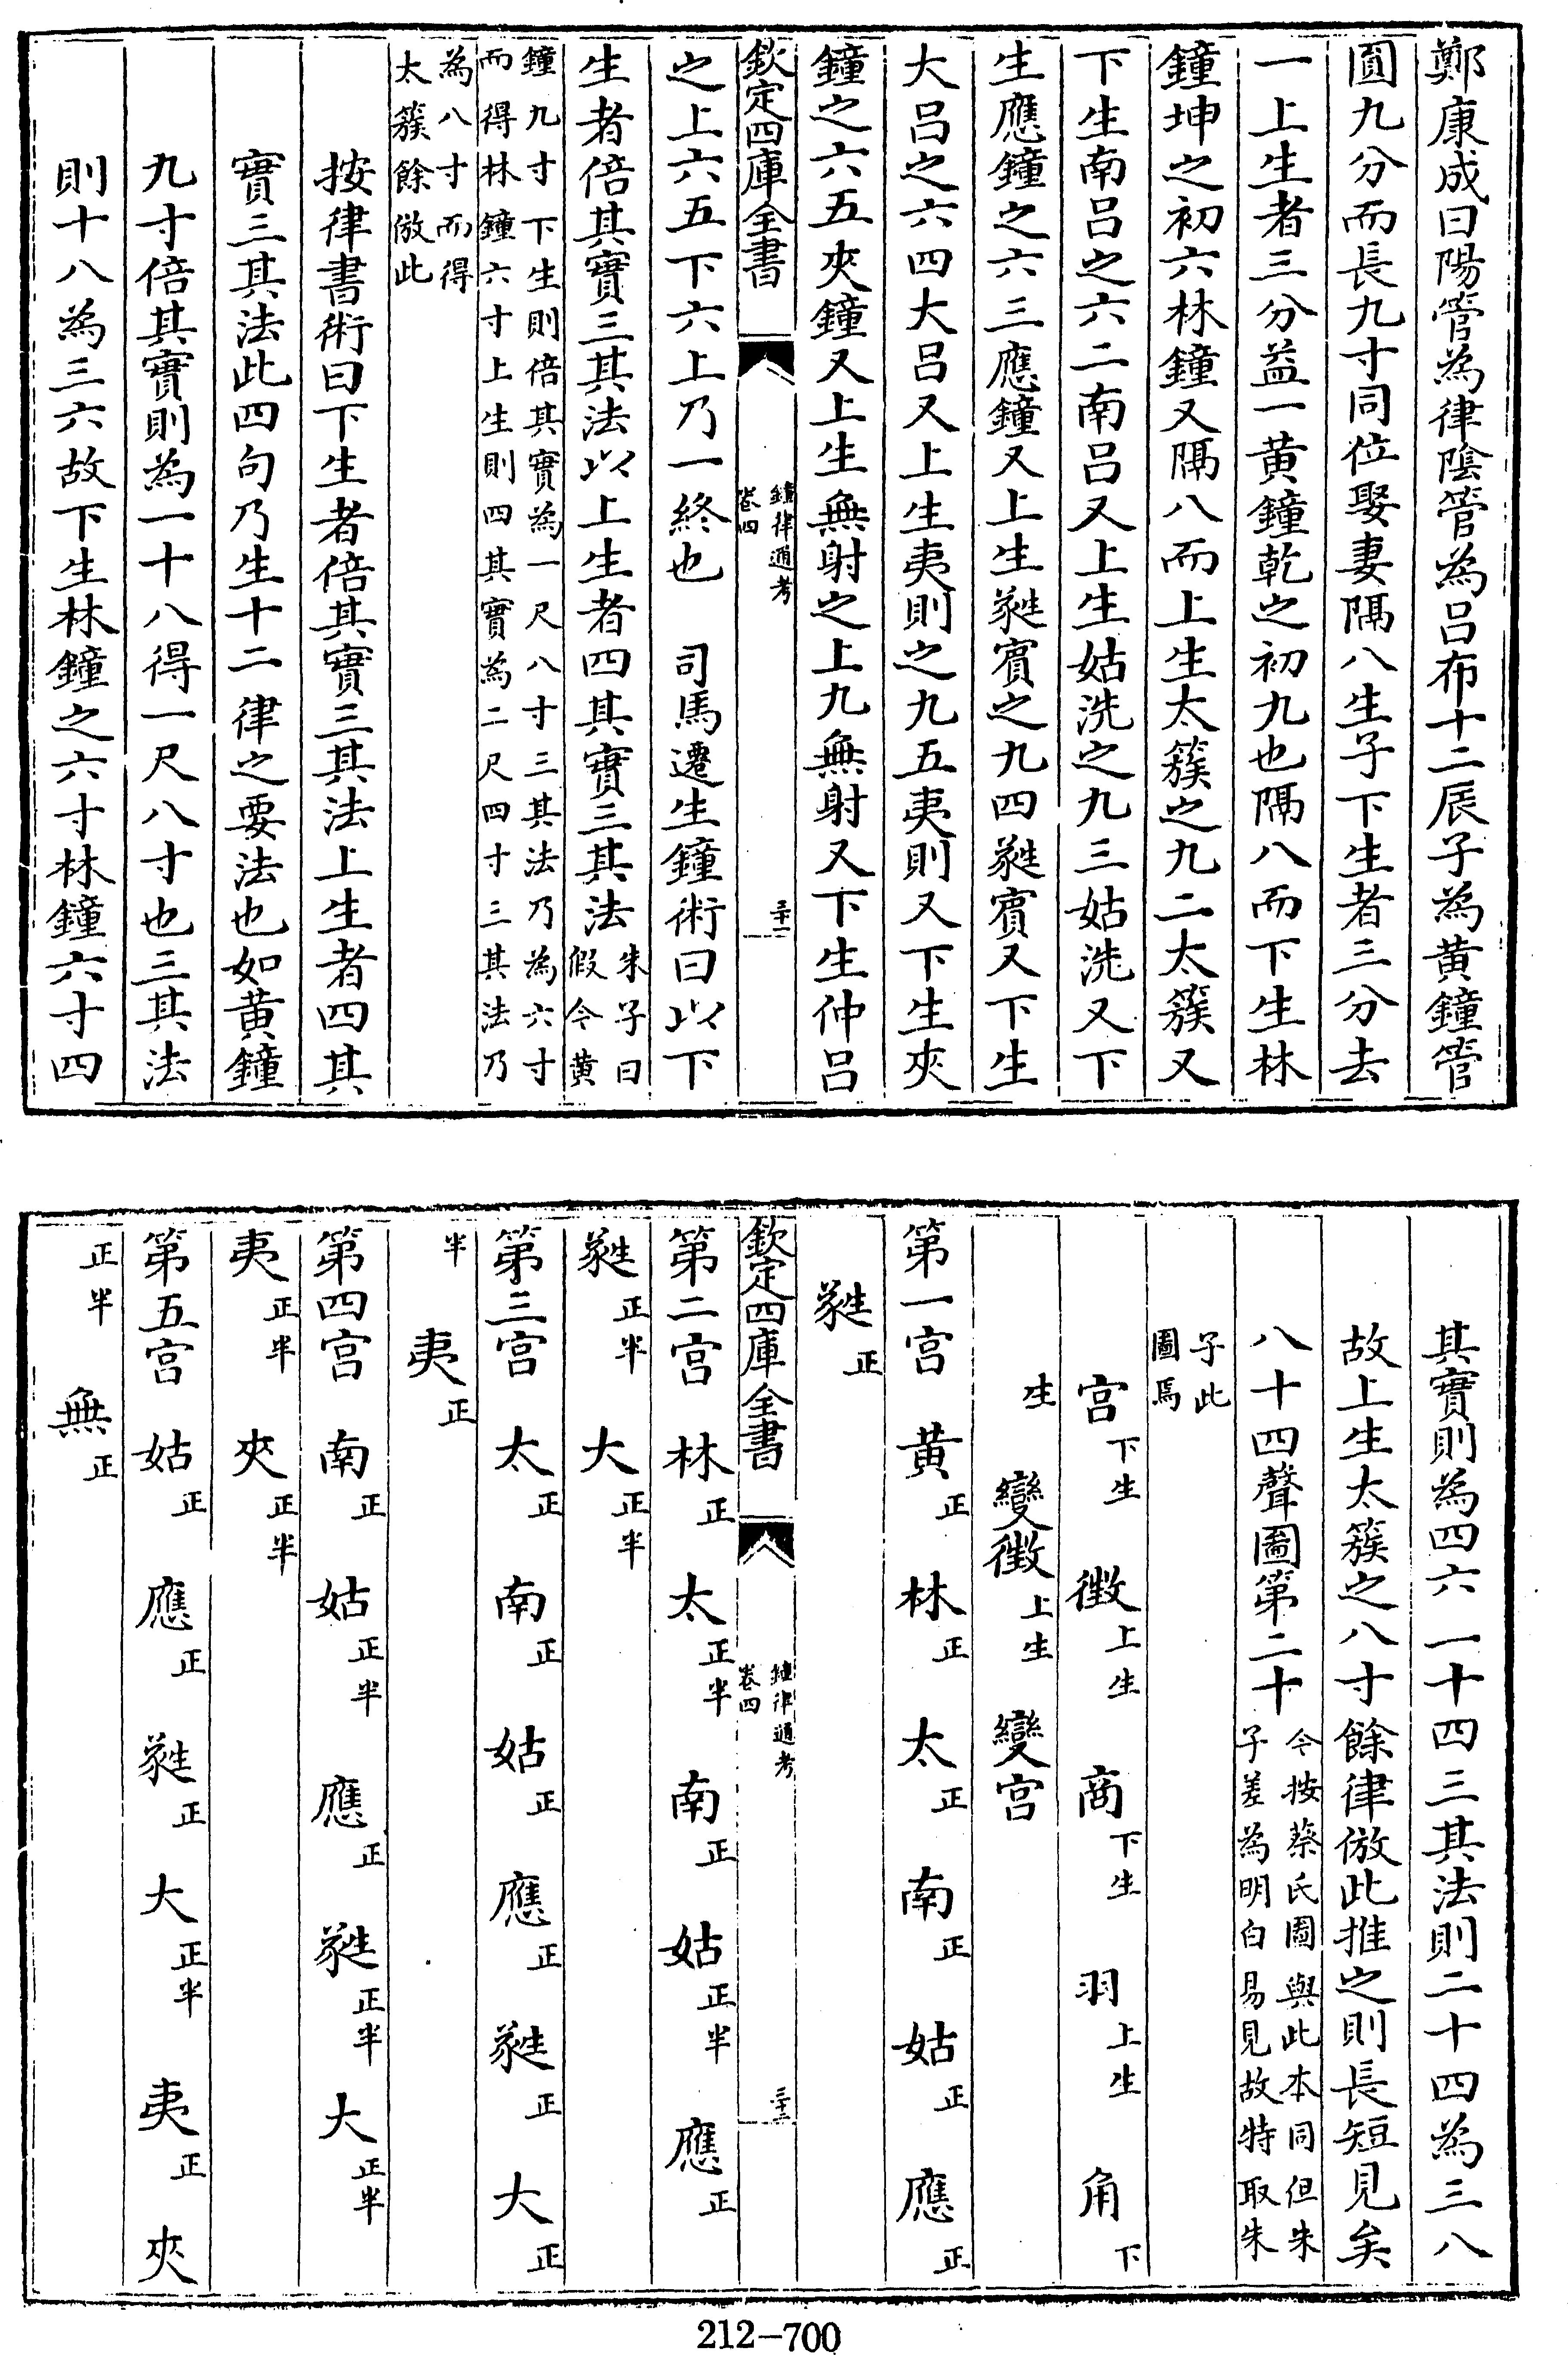 鄭康成曰陽管為律陰管為呂布十二辰子為黄鐘管
圓九分而長九寸同位娶妻隔八生子下生者三分去
一上生者三分益一黄鐘乾之初九也隔八而下生林
鐘坤之初六林鐘又隔八而上生太簇之九二太簇又
下生南呂之六二南呂又上生姑洗之九三姑洗又下
生應鐘之六三應鐘又上生蕤賓之九四蕤賓又下生
大呂之六四大呂又上生夷則之九五夷則又下生夾
鐘之六五夾鐘又上生無射之上九無射又下生仲呂
欽定四庫全書
鐘律通考
卷四
三十一
之上六五下六上乃一終也　司馬遷生鐘術曰以下
生者倍其實三其法以上生者四其實三其法
朱子曰
假令黄
鐘九寸下生則倍其實為一尺八寸三其法乃為六寸
而得林鐘六寸上生則四其實為二尺四寸三其法乃
為八寸而得
太簇餘倣此
按律書術曰下生者倍其實三其法上生者四其
實三其法此四句乃生十二律之要法也如黄鐘
九寸倍其實則為一十八得一尺八寸也三其法
則十八為三六故下生林鐘之六寸林鐘六寸四
其實則為四六一十四三其法則二十四為三八
故上生太簇之八寸餘律倣此推之則長短見矣
八十四聲圖第二十
今按蔡氏圖與此本同但朱
子差為明白易見故特取朱
子此
圖焉
宫下生　徴上生　商下生　羽上生　角下
生　變徴上生　變宫
第一宫　黄正　林正　太正　南正　姑正　應正
蕤正
欽定四庫全書
鐘律通考
卷四
三十二
第二宫　林正　太正半　南正　姑正半　應正
蕤正半　大正半
第三宫　太正　南正　姑正　應正　蕤正　大正
半　夷正
第四宫　南正　姑正半　應正　蕤正半　大正半
夷正半　夾正半
第五宫　姑正　應正　蕤正　大正半　夷正　夾
正半　無正
212-700